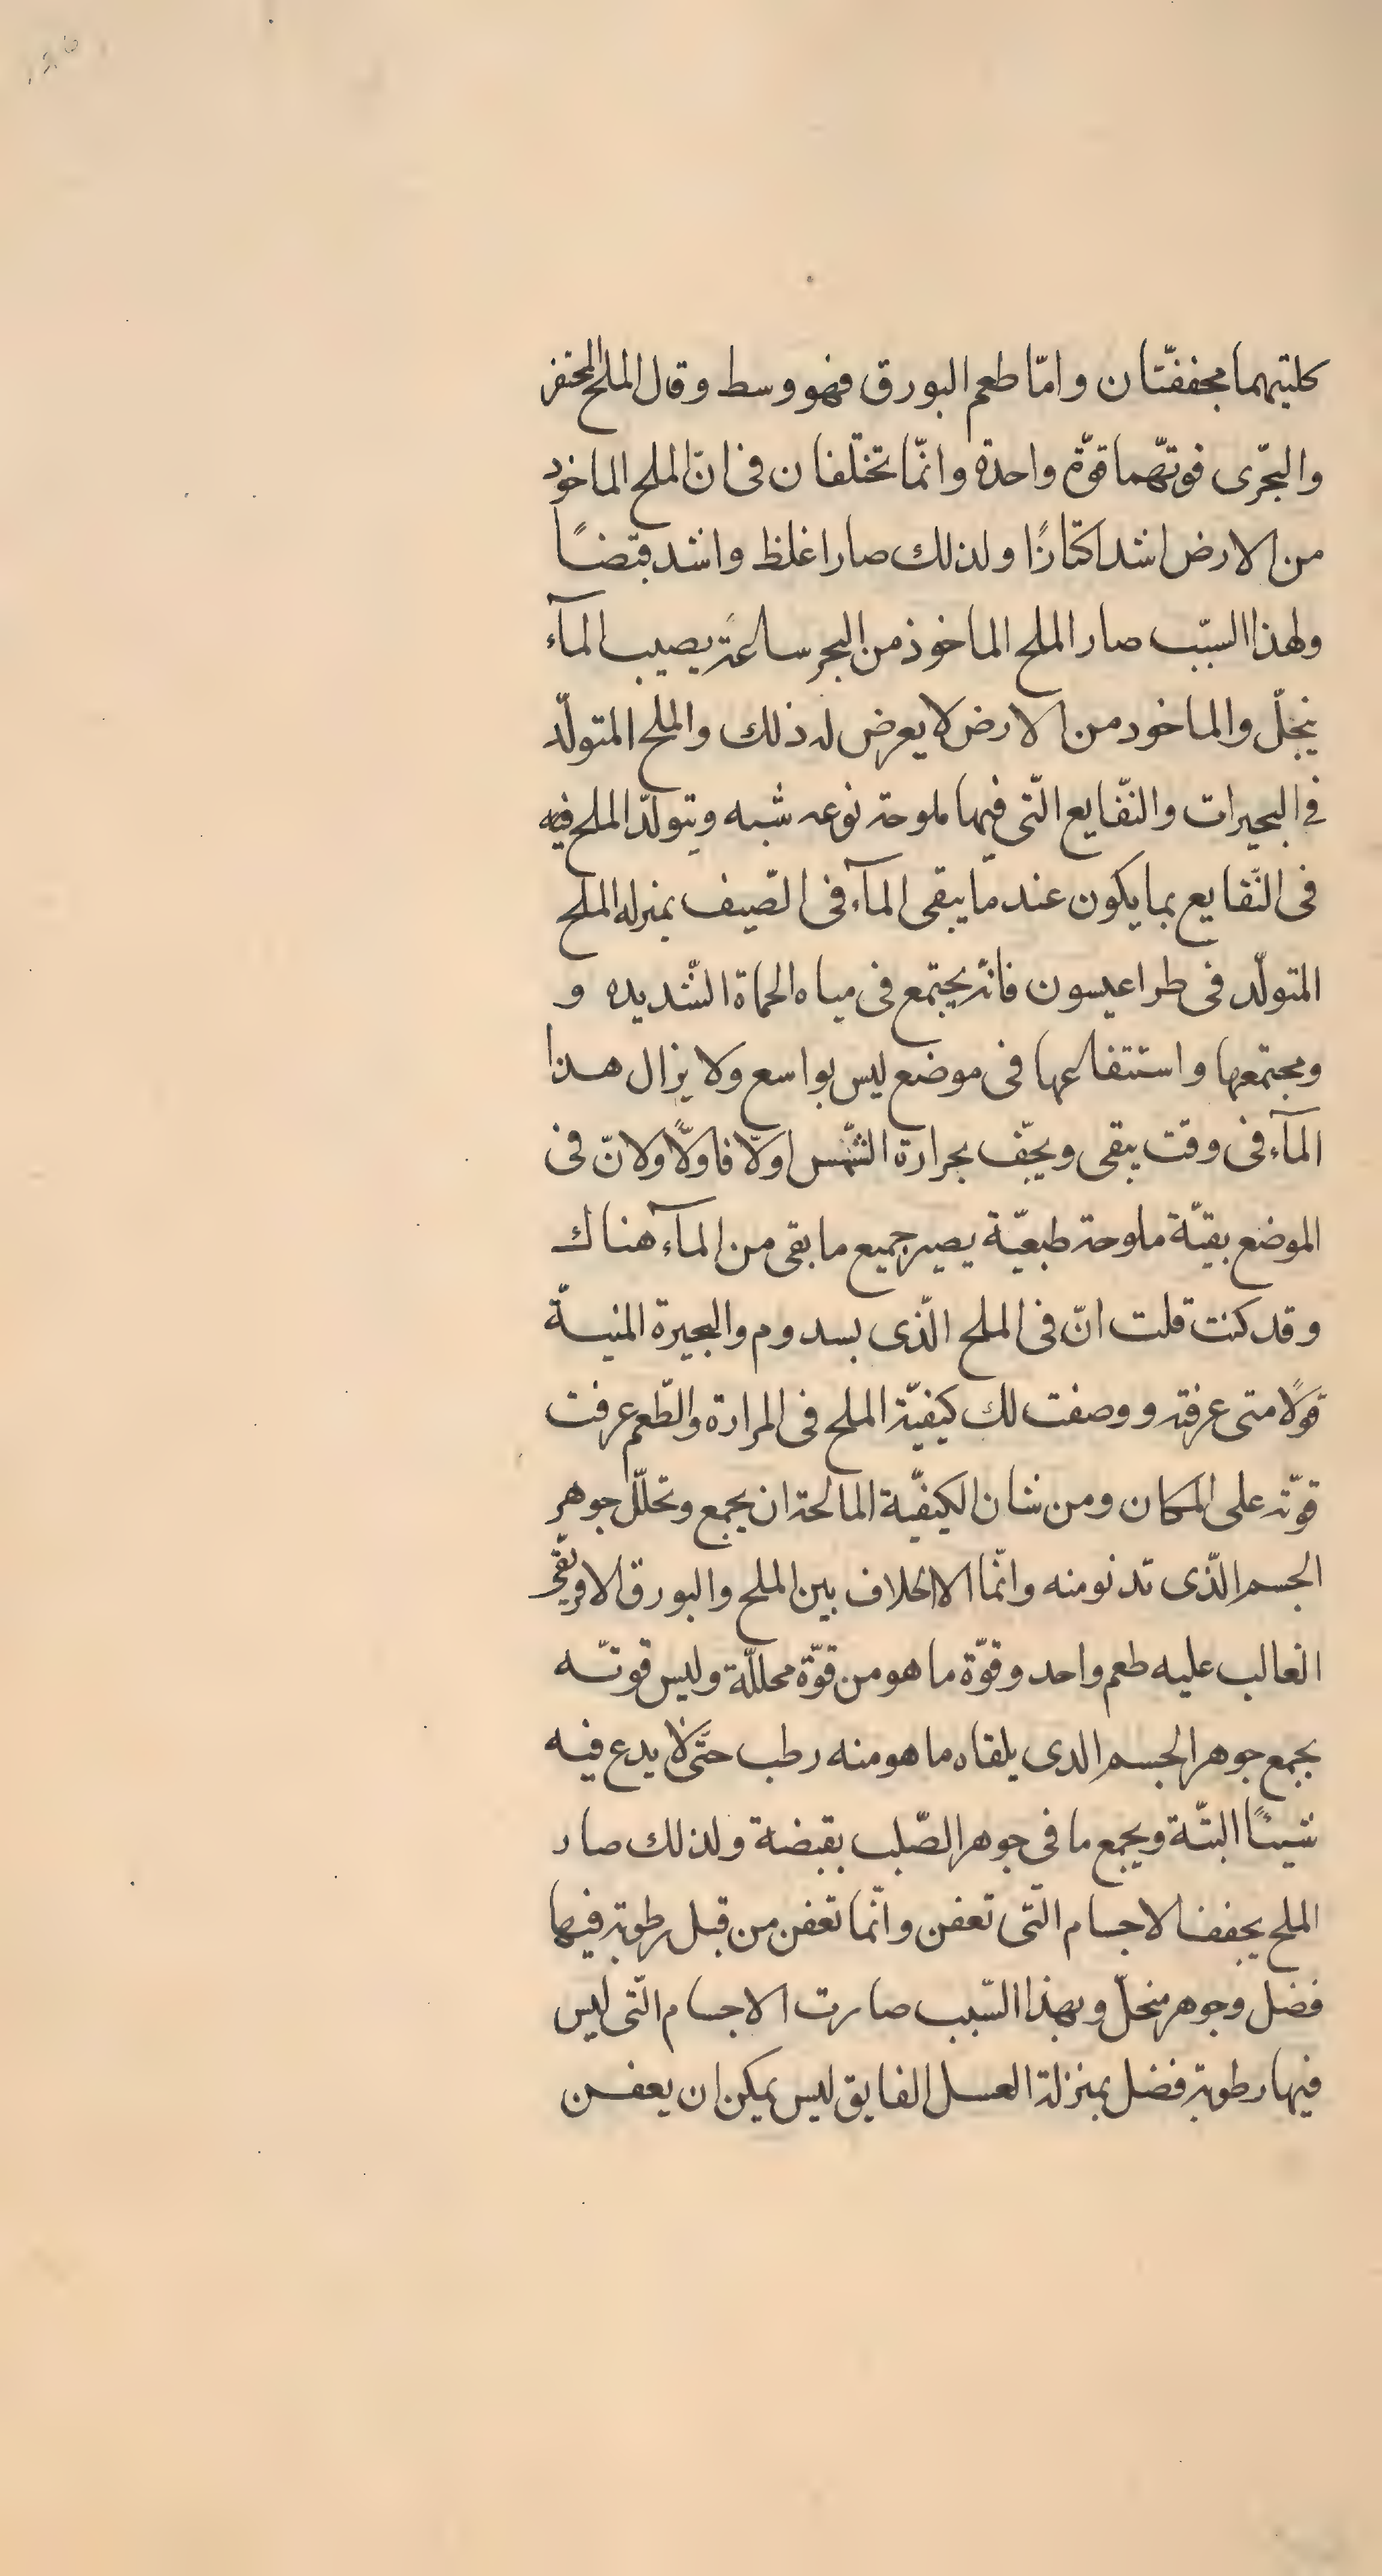 كليتهما مجففتّان وامّا طعم البورق فهو وسط وقال الملح المحتفر
والبحّرى قوتّهما قوّة واحدة وانّما تختلفان فى انّ الملح الماخود
من الارض اشد اكتنازًا ولذلك صار اغلظ واشد قبضًا
ولهذا السبّب صار الملح الماخوذ من البحر ساعة يصيب المآء
ينحلّ والماخود من الارض لا يعرض له ذلك والملح المتولّد
فى البحيرات والنقّايع الّتى فيها ملوحة نوعه شبه ويتولّد الملح فيه
فى النّقايع بما يكون عند مّا يبقى المآء فى الصّيف بمنزله الملح
المتولّد فى طراعيسون فانّه يجتمع فى مياه الحماة الشّديده و
ومجتمعها واستنقاعها فى موضع ليس بواسع ولا يزال هذا
المآء فى وقت يبقى ويجّف بحرارة الشّمس اولّا فاولّا ولانّ فى
الموضع بقيّة ملوحة طبعيّة يصير جميع ما بقى من المآء هناك
وقد كنت قلت انّ فى الملح الّذى بسدوم والبحيرة المنيــّة
قولًا متى عرفته ووصفت لك كيفيّة الملح فى المرارة والطّعم عرفت
قوّته على المكان ومن شان الكيفيّة المالحة ان يجمع وتحللّ جوهر
الجسم الّذى تدنو منه وانّما الاالخلاف بين الملح والبورق الافريقّى
الغالب عليه طعم واحد وقوّة ما هو من قوّة محللّة وليس قوتّه
بجمع جوهر الجسم الدى يلقاه ما هو منه رطب حتّى لا يدع فيه
شيئًا البتّة ويجمع ما فى جوهر الصّلب بقبضة ولذلك صار
الملح يجفف الاجسام الّتى تعفن وانّما تعفن من قبل رطوبة فيها
فضل وجوهر منحلّ وبهذا السّبب صارت الاجسام الّتى ليس
فيها رطوبة فضل بمنزلة العسل الفايق ليس يمكن ان يعفن